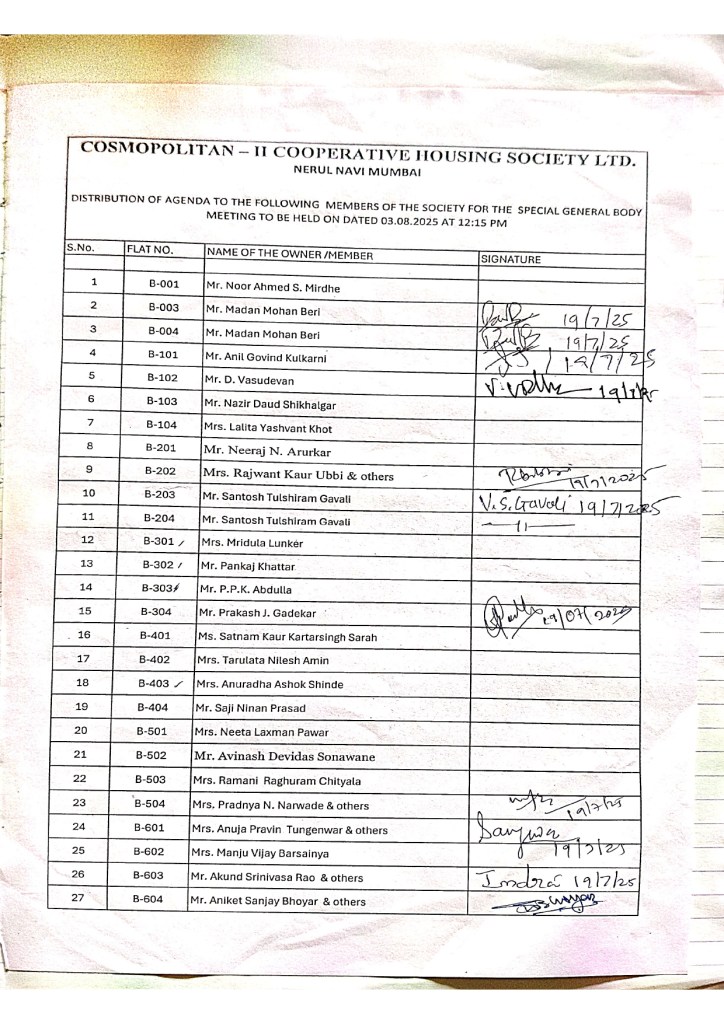 COSMOPOLITAN – II COOPERATIVE HOUSING SOCIETY LTD.
NERUL NAVI MUMBAI
DISTRIBUTION OF AGENDA TO THE FOLLOWING MEMBERS OF THE SOCIETY FOR THE SPECIAL GENERAL BODY
MEETING TO BE HELD ON DATED 03.08.2025 AT 12:15 PM
S.No. FLAT NO. NAME OF THE OWNER /MEMBER SIGNATURE
1 B-001 Mr. Noor Ahmed S. Mirdhe
2 B-003 Mr. Madan Mohan Beri 19/7/25
3 B-004 Mr. Madan Mohan Beri 19/7/25
4 B-101 Mr. Anil Govind Kulkarni 19/7/25
5 B-102 Mr. D. Vasudevan
6 B-103 Mr. Nazir Daud Shikhalgar
7 B-104 Mrs. Lalita Yashvant Khot
8 B-201 Mr. Neeraj N. Arurkar
9 B-202 Mrs. Rajwant Kaur Ubbi & others 19/7/2025
10 B-203 Mr. Santosh Tulshiram Gavali V.S.Gavali 19/7/2025
11 B-204 Mr. Santosh Tulshiram Gavali —11—
12 B-301 Mrs. Mridula Lunker
13 B-302 Mr. Pankaj Khattar
14 B-303 Mr. P.P.K. Abdulla
15 B-304 Mr. Prakash J. Gadekar 19/07/2025
16 B-401 Ms. Satnam Kaur Kartarsingh Sarah
17 B-402 Mrs. Tarulata Nilesh Amin
18 B-403 Mrs. Anuradha Ashok Shinde
19 B-404 Mr. Saji Ninan Prasad
20 B-501 Mrs. Neeta Laxman Pawar
21 B-502 Mr. Avinash Devidas Sonawane
22 B-503 Mrs. Ramani Raghuram Chityala
23 B-504 Mrs. Pradnya N. Narwade & others 19/7/25
24 B-601 Mrs. Anuja Pravin Tungenwar & others
25 B-602 Mrs. Manju Vijay Barsainya 19/7/25
26 B-603 Mr. Akund Srinivasa Rao & others Indra 19/7/25
27 B-604 Mr. Aniket Sanjay Bhoyar & others